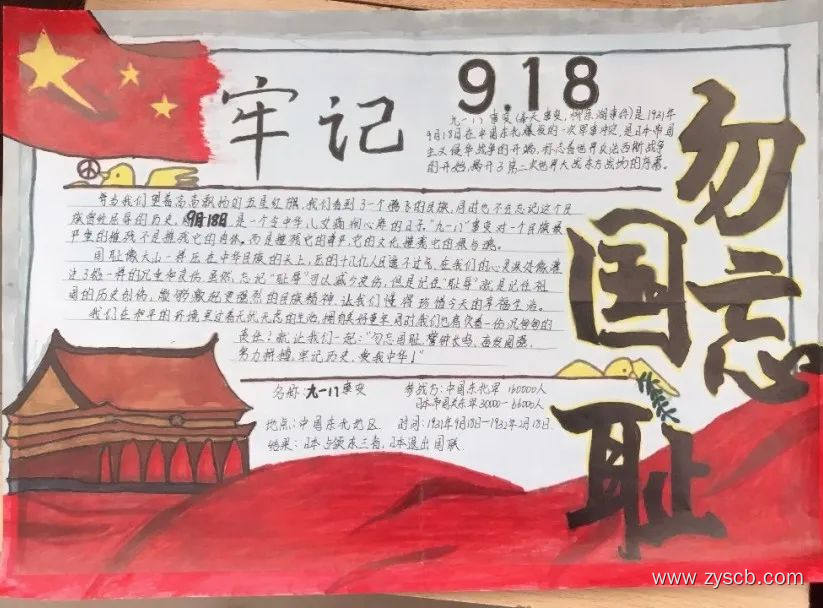 牢记
9.18
九一八事变(奉天事变、柳条湖事件)是1931年
9月18日在中国东北爆发的一次军事冲突,是日本帝国
主义侵华战争的开端,标志着世界反法西斯战争
的开始,揭开了第二次世界大战东方战场的序幕。
勿忘
国耻
每当我们望着高高飘扬的五星红旗,我们看到了一个腾飞的民族,同时也不会忘记这个民
族曾经屈辱的历史。9月18日,是一个令中华儿女痛彻心扉的日子。"九一八"事变对一个民族最
严重的摧残不是摧残它的肉体,而是摧残它的精神,它的文化,摧残它的根与魂。
国耻像大山一样压在中华民族的头上,压的十几亿人民透不过气,在我们的心灵深处像灌
注了铅一样的沉重和哀伤。虽然,忘记"耻辱"可以减少哀伤,但是记住"耻辱"就是记住祖
国的历史创伤,能够激起更强烈的民族精神,让我们懂得珍惜今天的幸福生活。
我们在和平的环境里过着无忧无虑的生活,拥有美好童年,同时我们也肩负着一份沉甸甸的
责任!就让我们一起:"勿忘国耻,警钟长鸣,奋发图强,
努力拼搏,牢记历史,爱我中华!"
名称:九一八事变 参战方:中国东北军 160000人
日本帝国关东军30000-66000人
地点:中国东北地区 时间:1931年9月18日-1932年2月18日
结果:日本占领东三省,日本退出国联
www.zyscb.com